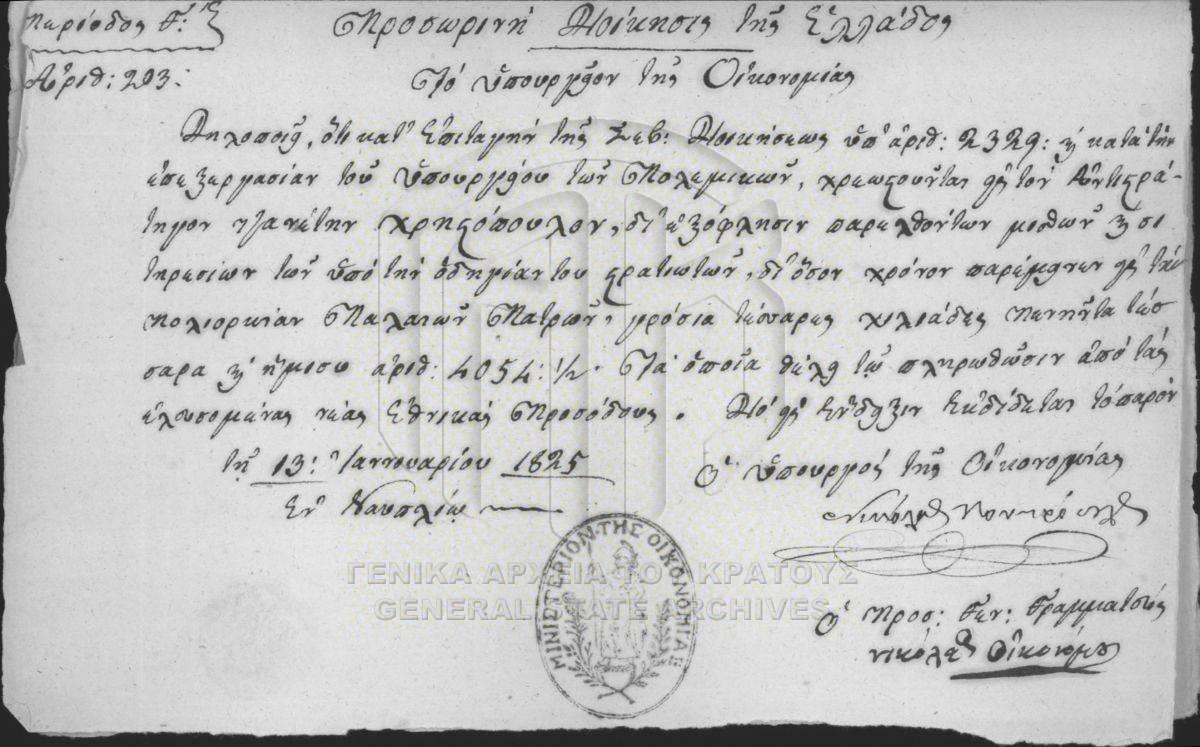 Περίοδος Γ.ης
Προσωρινὴ Διοίκησις τῆς Ἑλλάδος
Ἀριθ: 203:
Τὸ ὑπουργεῖον τῆς Οἰκονομίας
Δηλοποιεῖ, ὅτι κατ' ἐπιταγὴν τῆς Σεβ: Διοικήσεως ὑπ' ἀριθ: 2329: καὶ κατὰ τὴν
ἐπεξεργασίαν τοῦ ὑπουργείου τῶν Πολεμικῶν, χρεωστοῦνται εἰς τὸν Ἀντιστρά-
τηγον τζανέτην Χρηστόπουλον, δι' ἐξόφλησιν παρελθόντων μισθῶν καὶ σι
τηρεσίων τῶν ὑπὸ τὴν ὁδηγίαν του στρατιωτῶν, δι' ὅσον χρόνον παρέμεινεν εἰς τὴν
πολιορκίαν Παλαιῶν Πατρῶν, γρόσια τέσσαρες χιλιάδες πενῆντα τέσ
σαρα καὶ ἥμισυ ἀριθ: 4054:1/2. Τὰ ὁποῖα θέλει τῷ πληρωθῶσιν ἀπὸ τὰς
ἐλευσομένας νέας Ἐθνικὰς Προσόδους. Διὸ εἰς ἔνδειξιν ἐκδίδεται τὸ παρὸν
τῇ 13: Ἰαννουαρίου 1825
Ὁ ὑπουργὸς τῆς Οἰκονομίας
Ἐν Ναυπλίῳ
Νικόλαος Πονηρόπουλος
ΜΙΝΙΣΤΕΡΙΟΝ ΤΗΣ ΟΙΚΟΝΟΜΙΑΣ
ΓΕΝΙΚΑ ΑΡΧΕΙΑ ΤΟΥ ΚΡΑΤΟΥΣ
GENERAL STATE ARCHIVES
Ὁ Προσ: Γεν: Γραμματεὺς
νικόλαος Οἰκονόμου